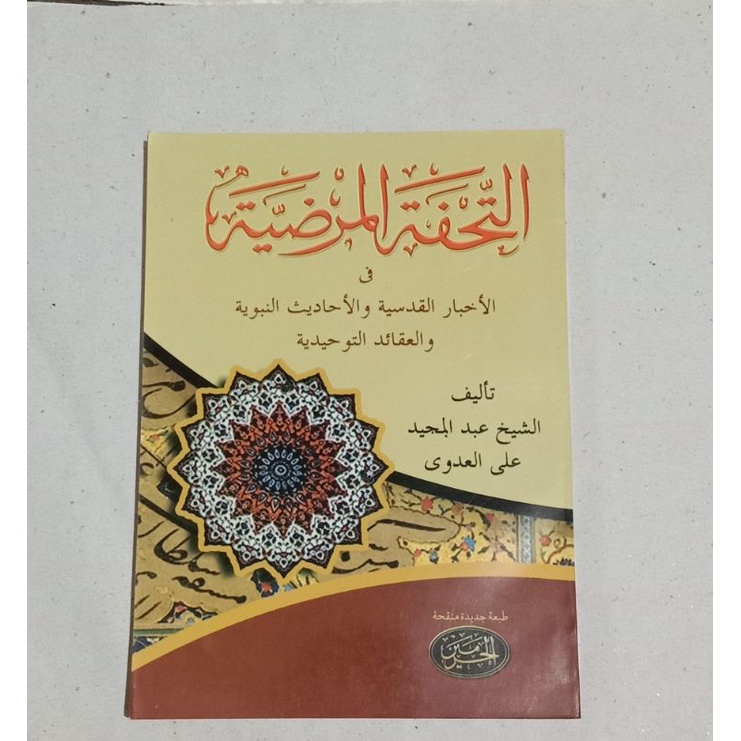 التُّحفَةُ المَرْضِيَّةُ
فى
الأخبار القدسية والأحاديث النبوية
والعقائد التوحيدية
تأليف
الشيخ عبد المجيد
على العدوى
طبعة جديدة منقحة
الحرمين